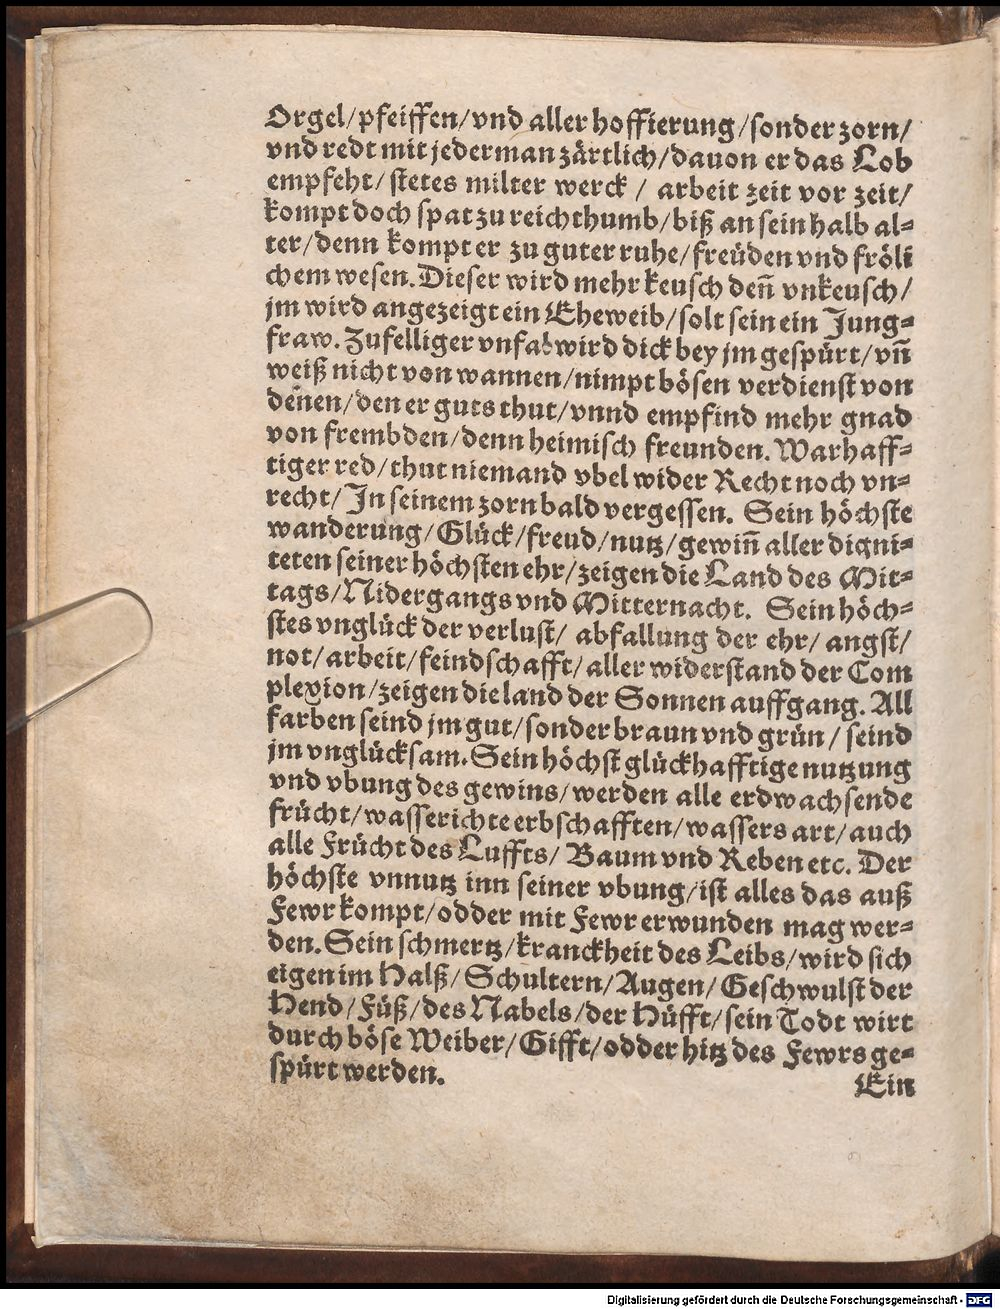 Orgel/pfeiffen/vnd aller hoffierung/sonder zorn/
vnd redt mit jederman zärtlich/dauon er das Lob
empfeht/stetes milter werck / arbeit zeit vor zeit/
kompt doch spat zu reichthumb/biß an sein halb al⸗
ter/denn kompt er zu guter ruhe/freüden vnd fröli
chem wesen. Dieser wird mehr keusch deñ vnkeusch/
jm wird angezeigt ein Eheweib/solt sein ein Jung⸗
fraw. Zufelliger vnfal wird dick bey jm gespürt/vñ
weiß nicht von wannen/nimpt bösen verdienst von
denen/den er guts thut/vnnd empfind mehr gnad
von frembden/denn heimisch freunden. Warhaff⸗
tiger red/thut niemand vbel wider Recht noch vn⸗
recht/ In seinem zorn bald vergessen. Sein höchste
wanderung/Glück/freud/nutz/gewiñ aller digni⸗
teten seiner höchsten ehr/zeigen die Land des Mit⸗
tags/Nidergangs vnd Mitternacht. Sein höch⸗
stes vnglück der verlust/ abfallung der ehr/ angst/
not/arbeit/feindschafft/aller widerstand der Com
plexion/zeigen die land der Sonnen auffgang. All
farben seind jm gut/sonder braun vnd grün/ seind
jm vnglücksam. Sein höchst glückhafftige nutzung
vnd vbung des gewins/werden alle erdwachsende
frücht/wasserichte erbschafften/wassers art/auch
alle Frücht des Luffts/ Baum vnd Reben etc. Der
höchste vnnutz inn seiner vbung/ist alles das auß
Fewr kompt/odder mit Fewr erwunden mag wer⸗
den. Sein schmertz/kranckheit des Leibs/wird sich
eigen im Halß/Schultern/Augen/Geschwulst der
Hend/Füß/des Nabels/der Hüfft/sein Todt wirt
durch böse Weiber/Gifft/odder hitz des Fewrs ge⸗
spürt werden.
Ein
Digitalisierung gefördert durch die Deutsche Forschungsgemeinschaft - DFG